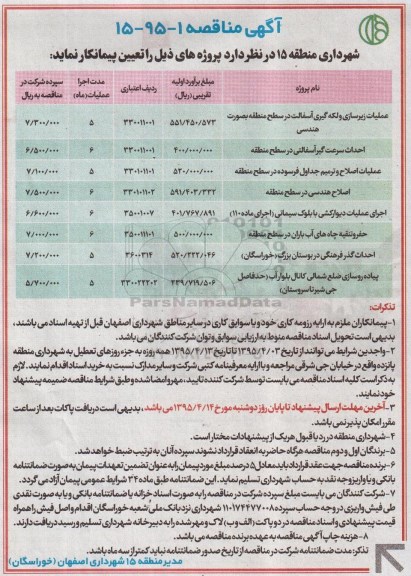 آگهی مناقصه ۱-۹۵-۱۵
شهرداری منطقه ۱۵ در نظر دارد پروژه های ذیل را تعیین پیمانکار نماید:
نام پروژه	مبلغ برآورد اولیه تقریبی (ریال)	ردیف اعتباری	مدت اجرا عملیات (ماه)	سپرده شرکت در مناقصه به ریال
عملیات زیرسازی و لکه گیری آسفالت در سطح منطقه بصورت هندسی	۵۵۱/۴۵۰/۵۷۳	۳۳۰۰۱۱۰۰۱	۵	۷/۳۰۰/۰۰۰
احداث سرعت گیر آسفالتی در سطح منطقه	۴۰۰/۰۰۰/۰۰۰	۳۳۰۰۱۱۰۰۱	۶	۶/۵۰۰/۰۰۰
عملیات اصلاح و ترمیم جداول فرسوده در سطح منطقه	۵۲۰/۰۰۰/۰۰۰	۳۳۰۱۰۱۱۰۱	۵	۷/۱۰۰/۰۰۰
اصلاح هندسی در سطح منطقه	۵۹۱/۴۰۳/۳۳۲	۳۳۰۱۰۱۱۰۲	۶	۷/۵۰۰/۰۰۰
اجرای عملیات دیوارکشی با بلوک سیمانی (اجرای ماده ۱۱۰)	۴۰۱/۷۶۷/۸۹۱	۳۵۰۰۱۰۰۷	۶	۶/۶۰۰/۰۰۰
حفر و تنقیه چاه های آب باران در سطح منطقه	۵۰۰/۰۰۰/۰۰۰	۳۵۰۰۱۱۱۰۱	۶	۷/۰۰۰/۰۰۰
احداث گذر فرهنگی در بوستان بزرگ (خوراسگان)	۵۲۰/۲۲۲/۰۴۶	۳۶۰۰۳۱۴	۵	۷/۲۰۰/۰۰۰
پیاده روسازی ضلع شمالی کانال بلوار آب (حدفاصل جی شیر تا سروستان)	۴۳۹/۷۱۹/۵۰۶	۳۳۰۰۲۲۲۰۲	۵	۵/۷۰۰/۰۰۰
ParsNamadData
تذکرات:
۱-پیمانکاران ملزم به ارایه رزومه کاری خود و یا سوابق کاری در سایر مناطق شهرداری اصفهان قبل از تهیه اسناد می باشند،
بدیهی است تحویل اسناد مناقصه منوط به ارزیابی سوابق و توان شرکت کنندگان می باشد.
۲-واجدین شرایط می توانند از تاریخ ۱۳۹۵/۰۴/۰۳ تا تاریخ ۱۳۹۵/۴/۱۳ همه روزه به جزء روزهای تعطیل به شهرداری منطقه
پانزده واقع در خیابان جی شرقی مراجعه و با ارایه معرفینامه کتبی شرکت و سایر مدارک نسبت به خرید اسناد اقدام نمایند. لازم
به ذکر است کلیه اسناد مناقصه می بایست توسط شرکت کننده تایید، مهر و امضا شده و طبق شرایط مناقصه ضمیمه پیشنهاد
خود نمایند.
۳-آخرین مهلت ارسال پیشنهاد تا پایان روز دوشنبه مورخ ۱۳۹۵/۴/۱۴ می باشد، بدیهی است دریافت پاکات بعد از ساعت
مقرر امکان پذیر نمی باشد.
۴-شهرداری منطقه در رد یا قبول هر یک از پیشنهادات مختار است.
۵-برندگان اول و دوم مناقصه هرگاه حاضر به انعقاد قرارداد نشوند سپرده آنان به ترتیب ضبط خواهد شد.
۶-برنده مناقصه جهت عقد قرارداد باید معادل ۵ درصد مبلغ مورد پیمان را به عنوان تضمین تعهدات پیمان به صورت ضمانتنامه
بانکی و یا واریز وجه نقد به حساب شهرداری تسلیم نماید. این ضمانتنامه طبق ماده ۳۴ شرایط عمومی پیمان آزاد می گردد.
۷-شرکت کنندگان می بایست مبلغ سپرده شرکت در مناقصه را به صورت اسناد خزانه یا ضمانتنامه بانکی و یا به صورت نقدی
طی فیش واریزی در وجه حساب سپرده ۱۱۰۱۷۴۴۷۷۰۰۸ شهرداری نزد بانک ملی شعبه خوراسگان اقدام و اصل فیش را همراه
قیمت پیشنهادی و اسناد مناقصه در دو پاکت (الف و ب) لاک و مهر شده را به دبیرخانه شهرداری تسلیم و رسید دریافت دارند.
۸-هزینه چاپ آگهی مناقصه به عهده برنده مناقصه می باشد.
تذکر: مدت ضمانتنامه شرکت در مناقصه از تاریخ صدور ضمانتنامه نباید کمتر از سه ماه باشد.
مدیر منطقه ۱۵ شهرداری اصفهان (خوراسگان)